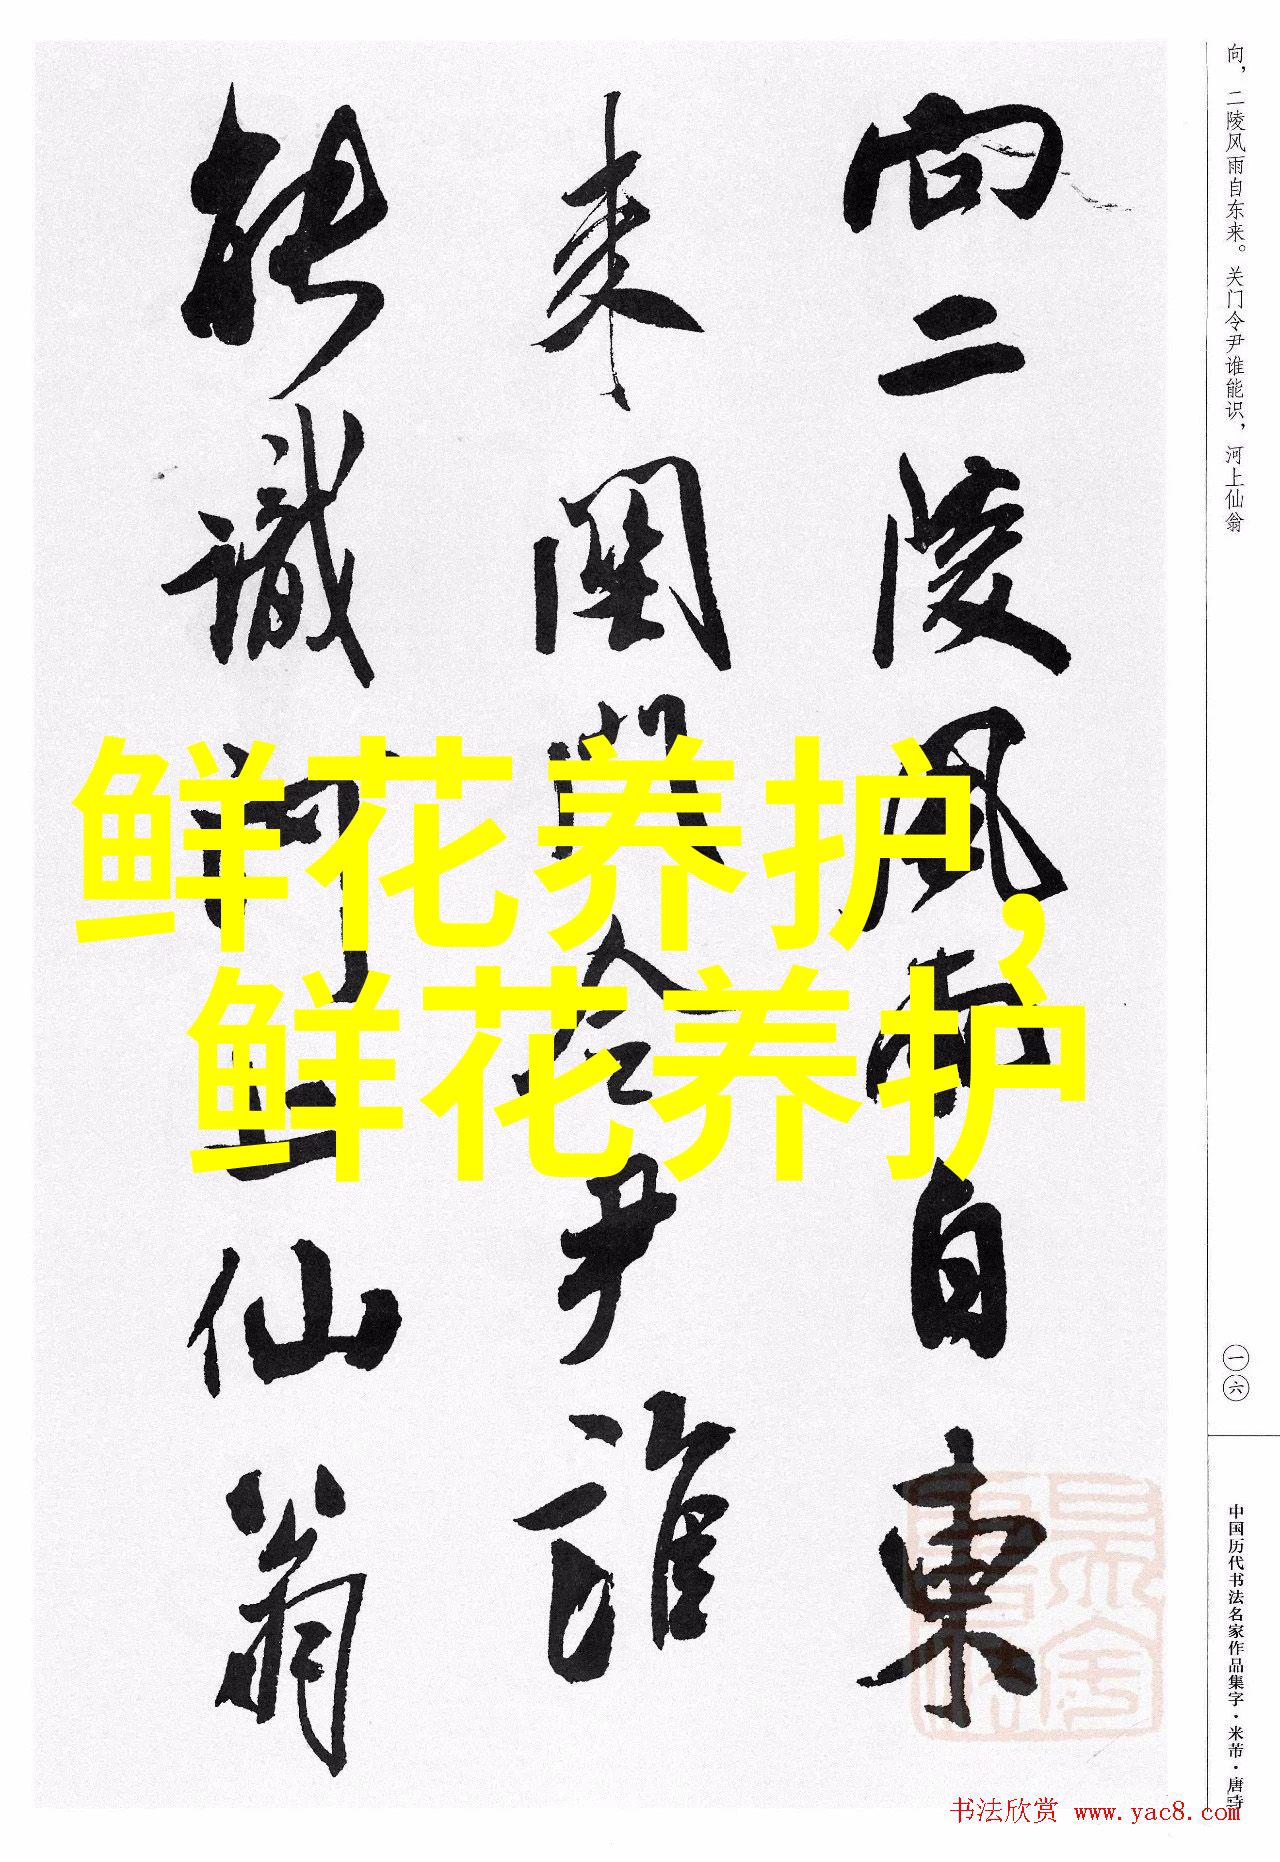 向，二陵风雨自东来。关门令尹谁能识，河上仙翁
一六
中国历代书法名家作品集字·米芾·唐诗
向二陵風雨自東
来關門令尹誰
能識河上仙翁
鲜花养护，
鲜花养护
书法欣赏 www.yac8.com